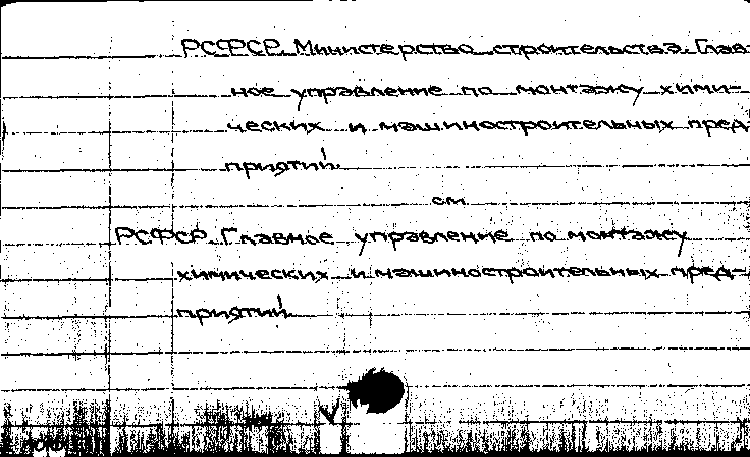 РСФСР. Министерство строительства. Глав-
ное управление по монтажу хими-
ческих и машиностроительных пред-
приятий.
см.
РСФСР. Главное управление по монтажу
химических и машиностроительных пред-
приятий.